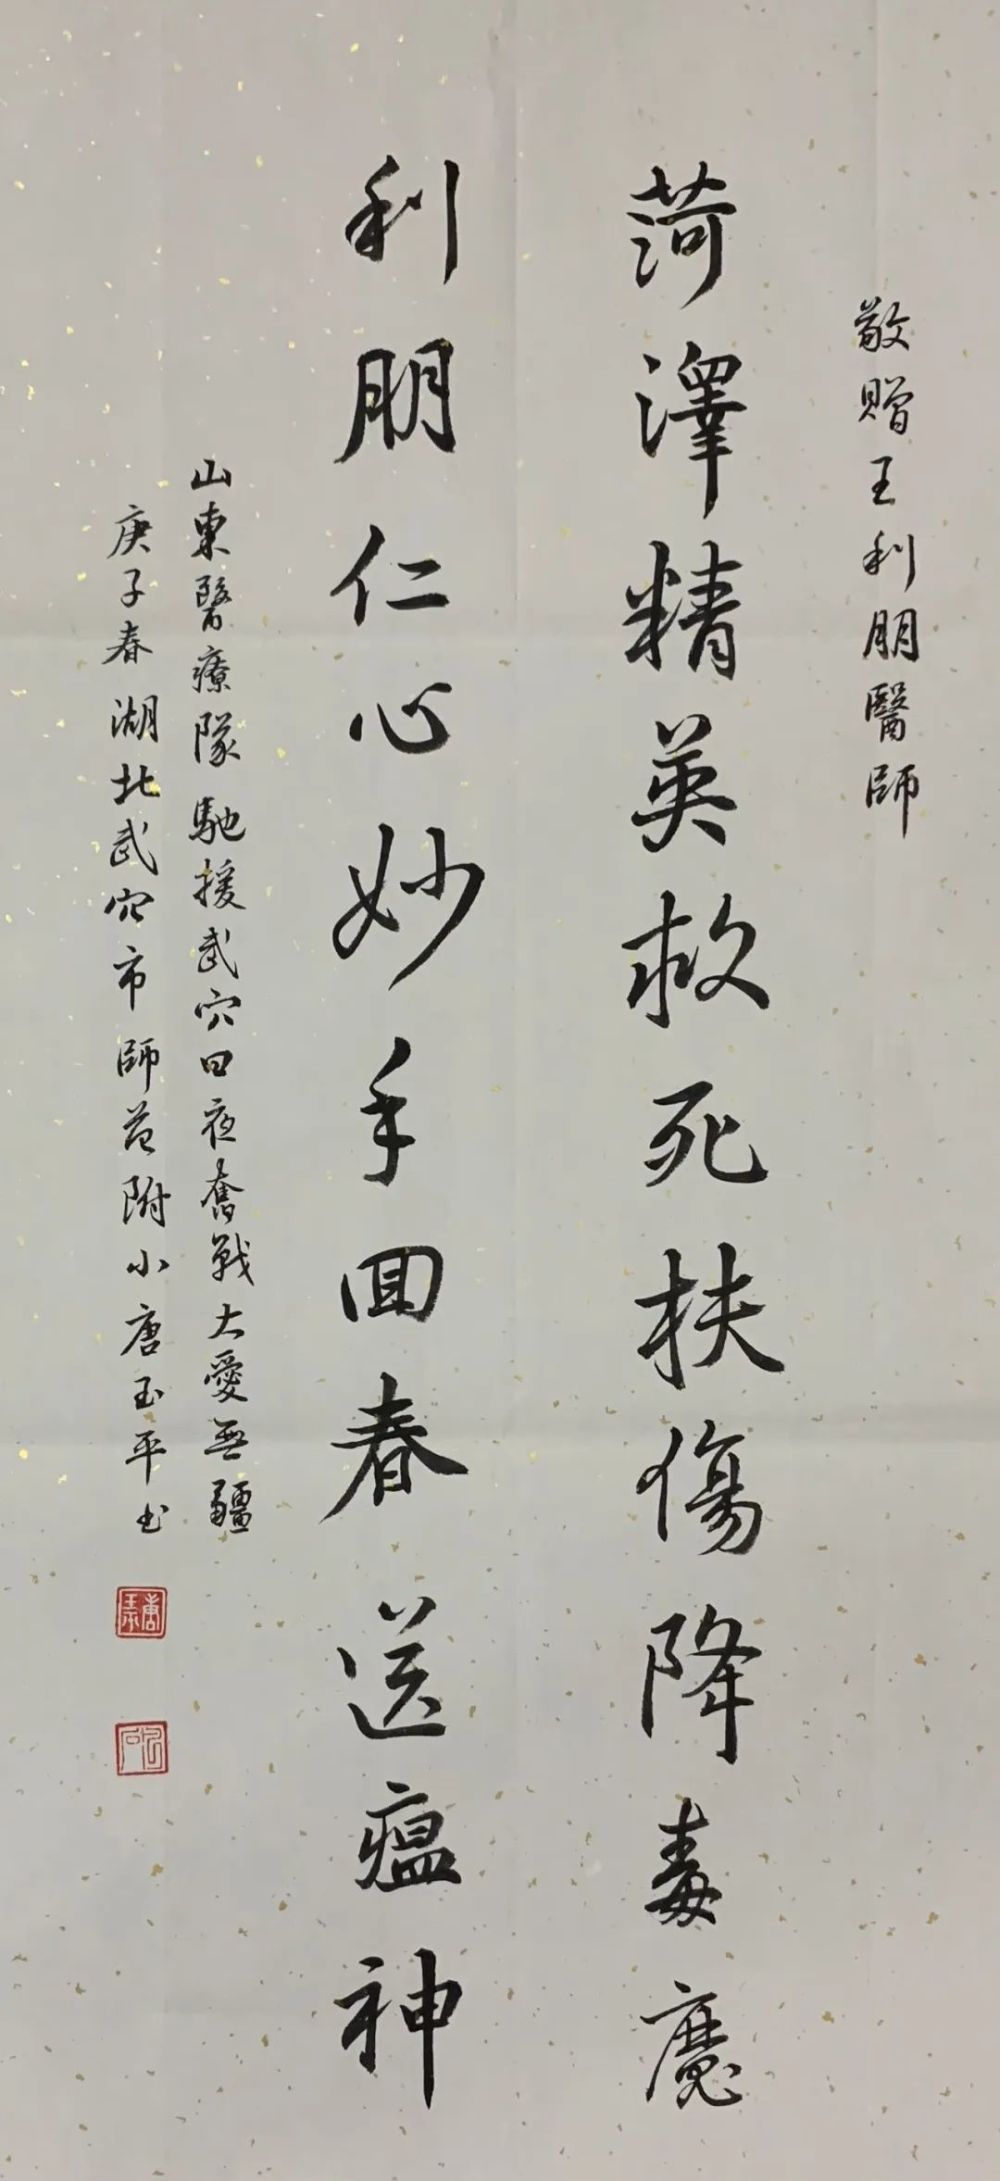 敬贈王利朋醫師
菏澤精英救死扶傷降毒魔
利朋仁心妙手回春送瘟神
山東醫療隊馳援武穴日夜奮戰大愛無疆
庚子春湖北武穴市師范附小唐玉平书